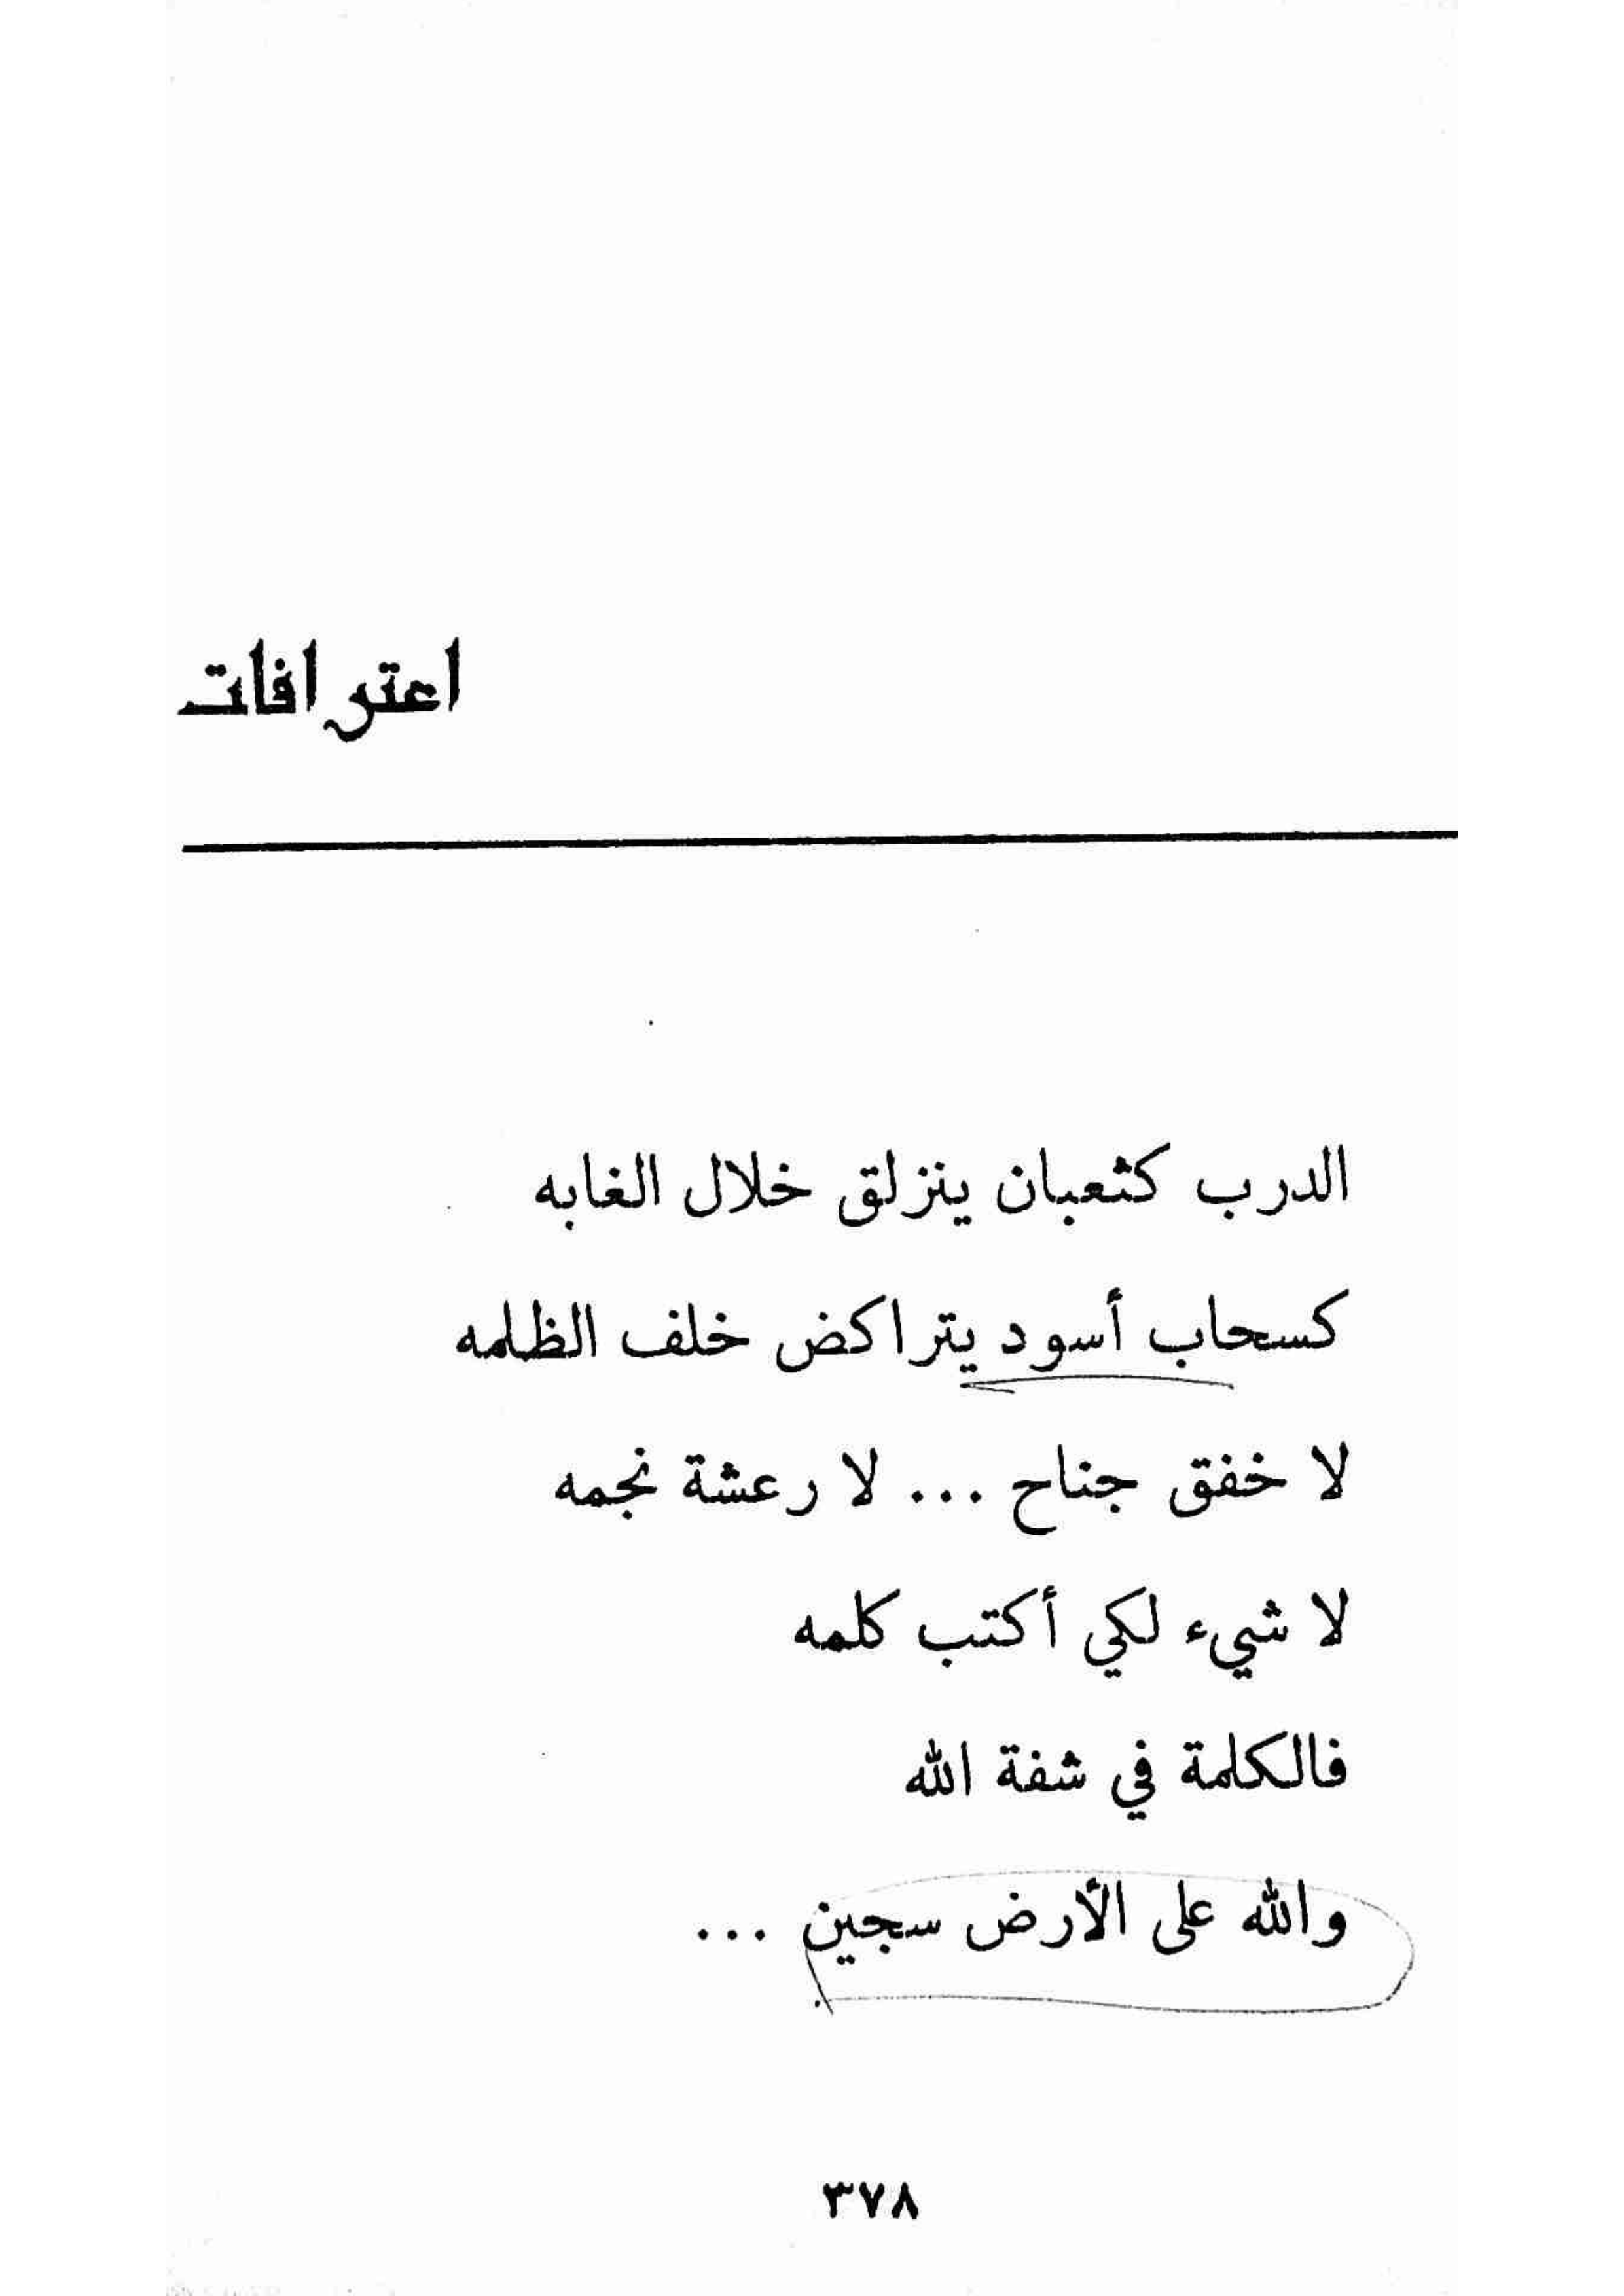 اعترافات
الدرب كثعبان ينزلق خلال الغابه
كسحاب أسود يتراكض خلف الظلمه
لا خفق جناح ... لا رعشة نجمه
لا شيء لكي أكتب كلمه
فالكلمة في شفة الله
والله على الأرض سجين ...
٣٧٨